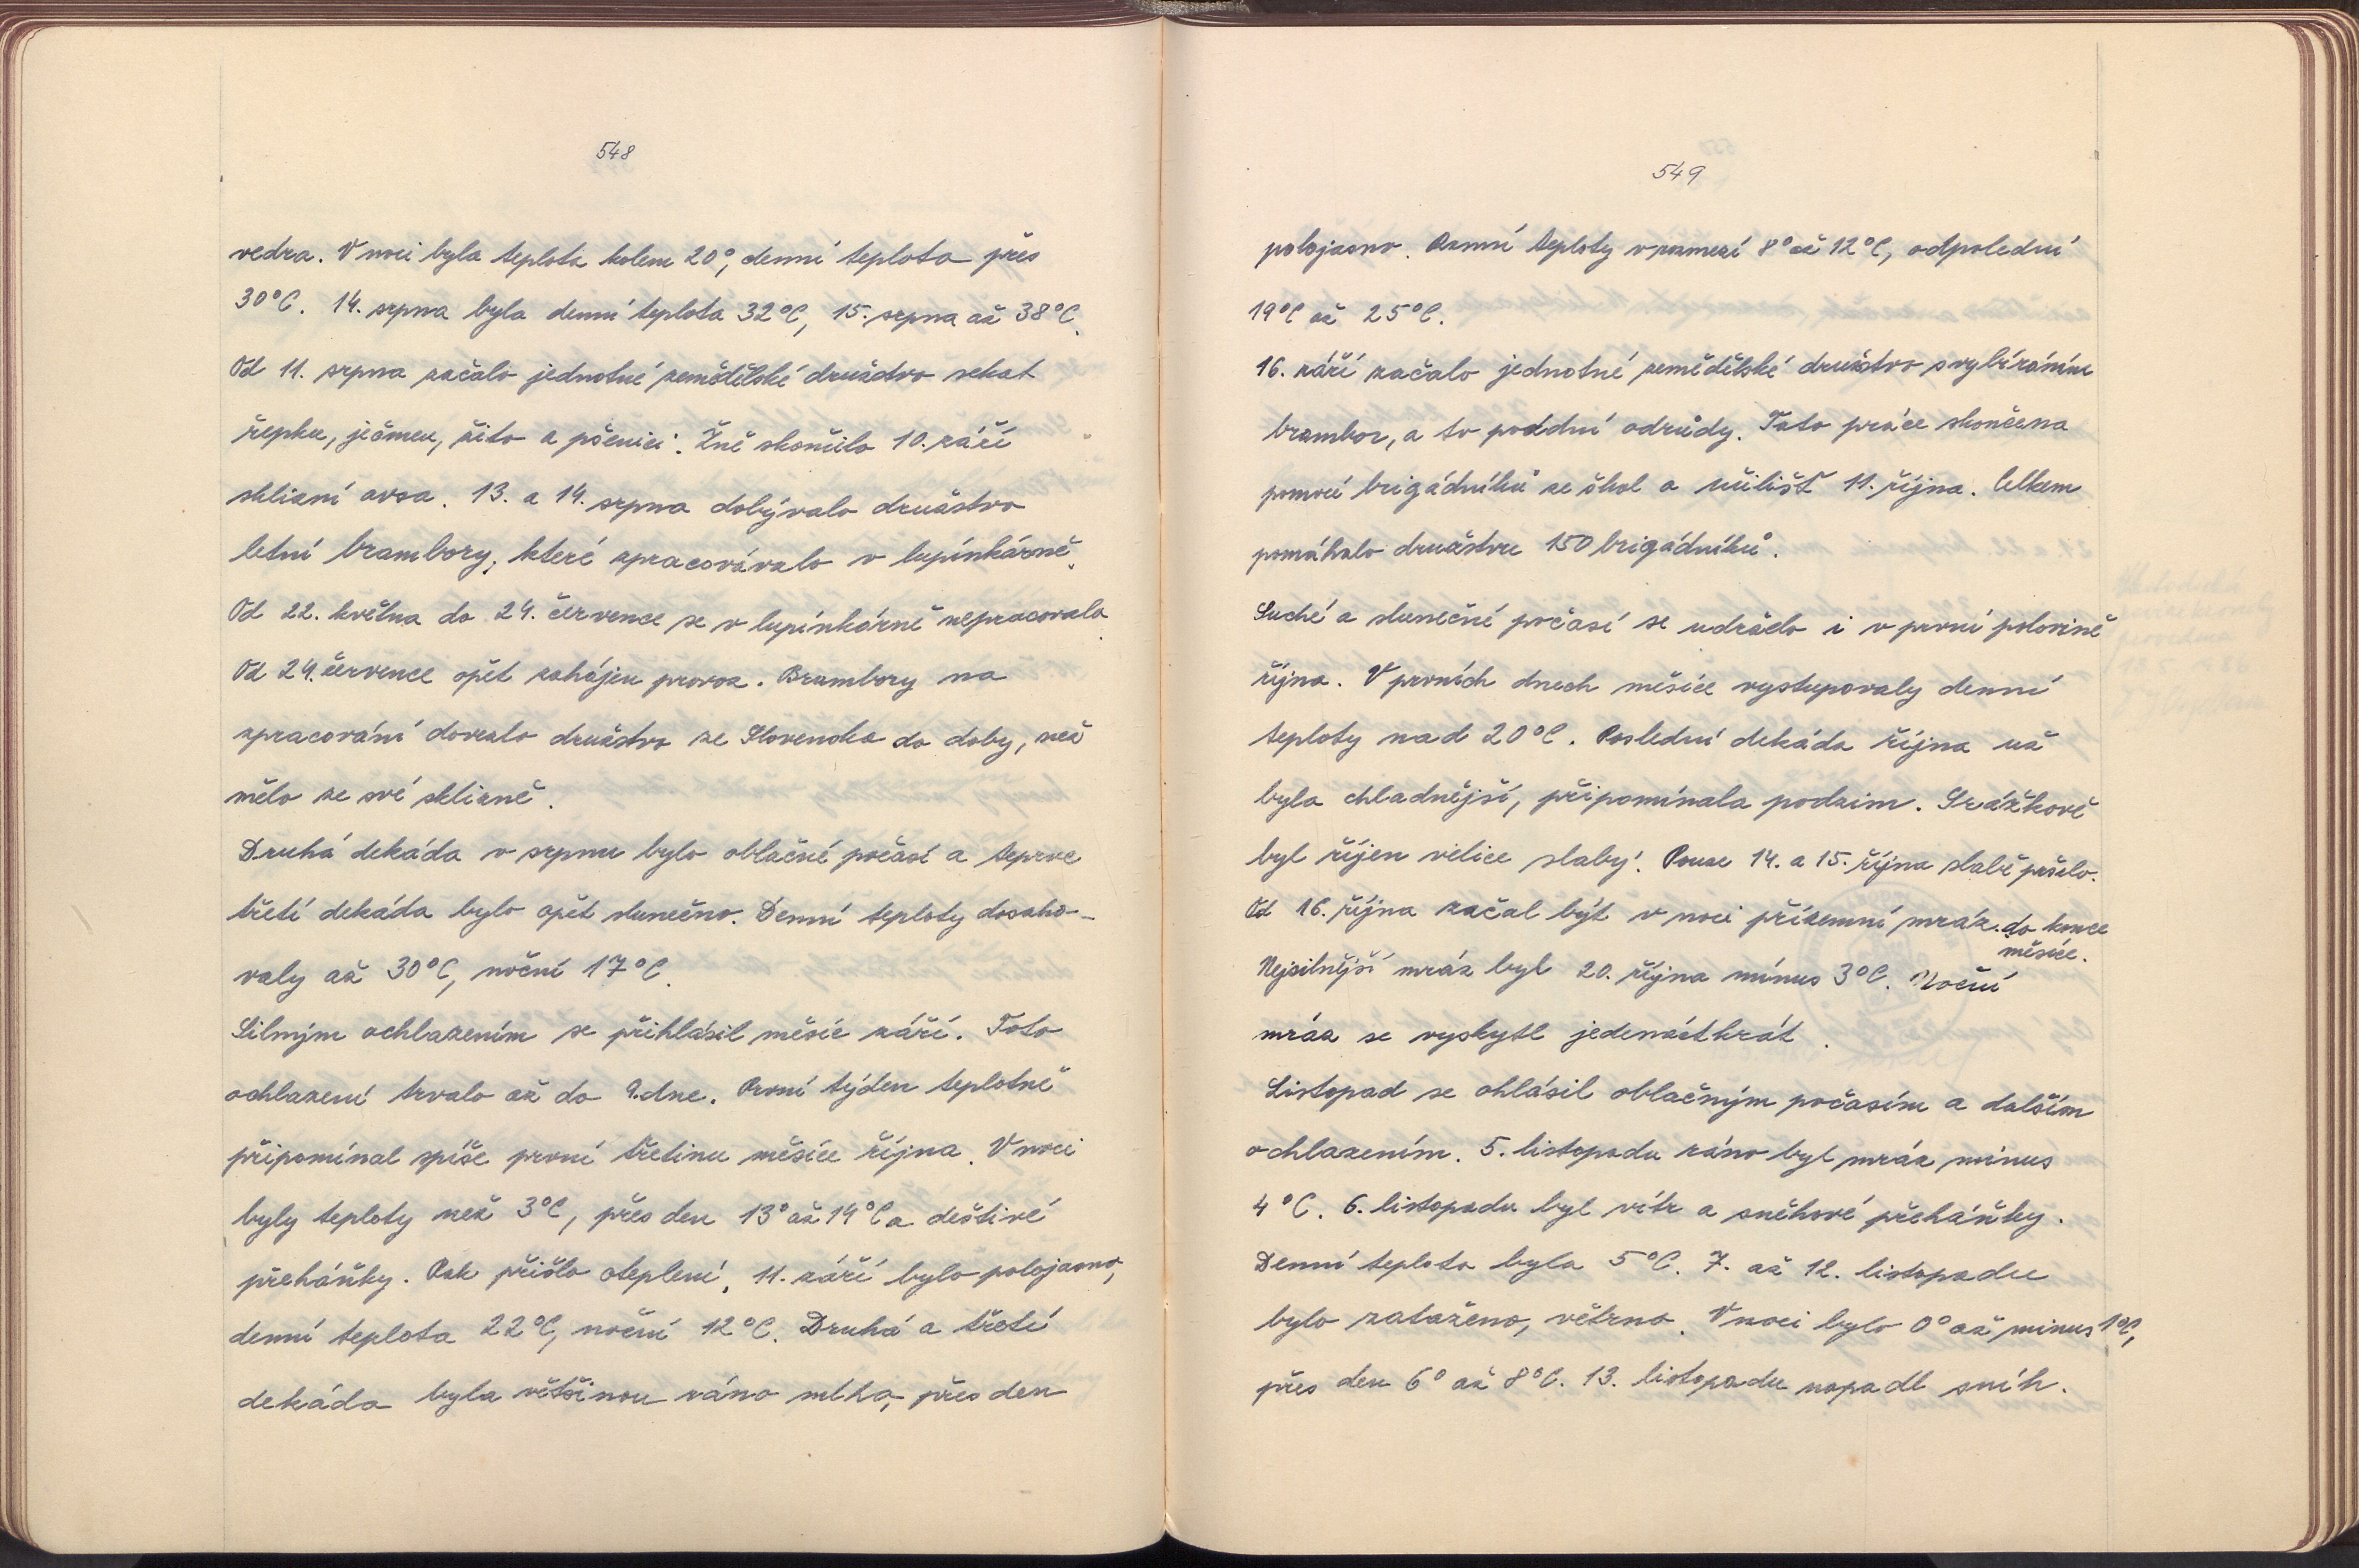 548
vedra. V noci byla teplota kolem 20°, denní teplota přes
30°C. 14. srpna byla denní teplota 32°C, 15. srpna až 38°C.
Od 11. srpna začalo jednotné zemědělské družstvo sekat
řepku, ječmen, žito a pšenici. Žně skončilo 10. září
sklizní ovsa. 13. a 14. srpna dobývalo družstvo
letní brambory, které zpracovávalo v lupínkárně.
Od 22. května do 24. července se v lupínkárně nepracovalo.
Od 24. července opět zahájen provoz. Brambory na
zpracování dovezlo družstvo ze Slovenska do doby, než
mělo ze své sklizně.
Druhá dekáda v srpnu bylo oblačné počasí a teprve
třetí dekáda bylo opět slunečno. Denní teploty dosaho-
valy až 30°C, noční 17°C.
Silným ochlazením se přihlásil měsíc září. Toto
ochlazení trvalo až do 9.dne. První týden teplotně
připomínal spíše první třetinu měsíce října. V noci
byly teploty než 3°C, přes den 13° až 14°C a deštivé
přeháňky. Pak přišlo oteplení, 11. září bylo polojasno,
denní teplota 22°C, noční 12°C. Druhá a třetí
dekáda byla většinou ráno mlha, přes den
549
polojasno. Ranní teploty v rozmezí 8° až 12°C, odpolední
19°C až 25°C.
16. září začalo jednotné zemědělské družstvo s vybíráním
brambor, a to pozdní odrůdy. Tato práce skončena
pomocí brigádníků ze škol a učilišť 11. října. Celkem
pomáhalo družstvu 150 brigádníků.
Suché a slunečné počasí se udrželo i v první polovině
října. V prvních dnech měsíce vystupovaly denní
teploty nad 20°C. Poslední dekáda října už
byla chladnější, připomínala podzim. Srážkově
byl říjen velice slabý. Pouze 14. a 15. října slabě pršelo.
Od 16. října začal být v noci přízemní mráz do konce
měsíce.
Nejsilnější mráz byl 20. října mínus 3°C. Noční
mráz se vyskytl jedenáctkrát.
Listopad se ohlásil oblačným počasím a dalším
ochlazením. 5. listopadu ráno byl mráz mínus
4°C. 6. listopadu byl vítr a sněhové přeháňky.
Denní teplota byla 5°C. 7. až 12. listopadu
bylo zataženo, větrno. V noci bylo 0° až minus 1°C,
přes den 6° až 8°C. 13. listopadu napadl sníh.